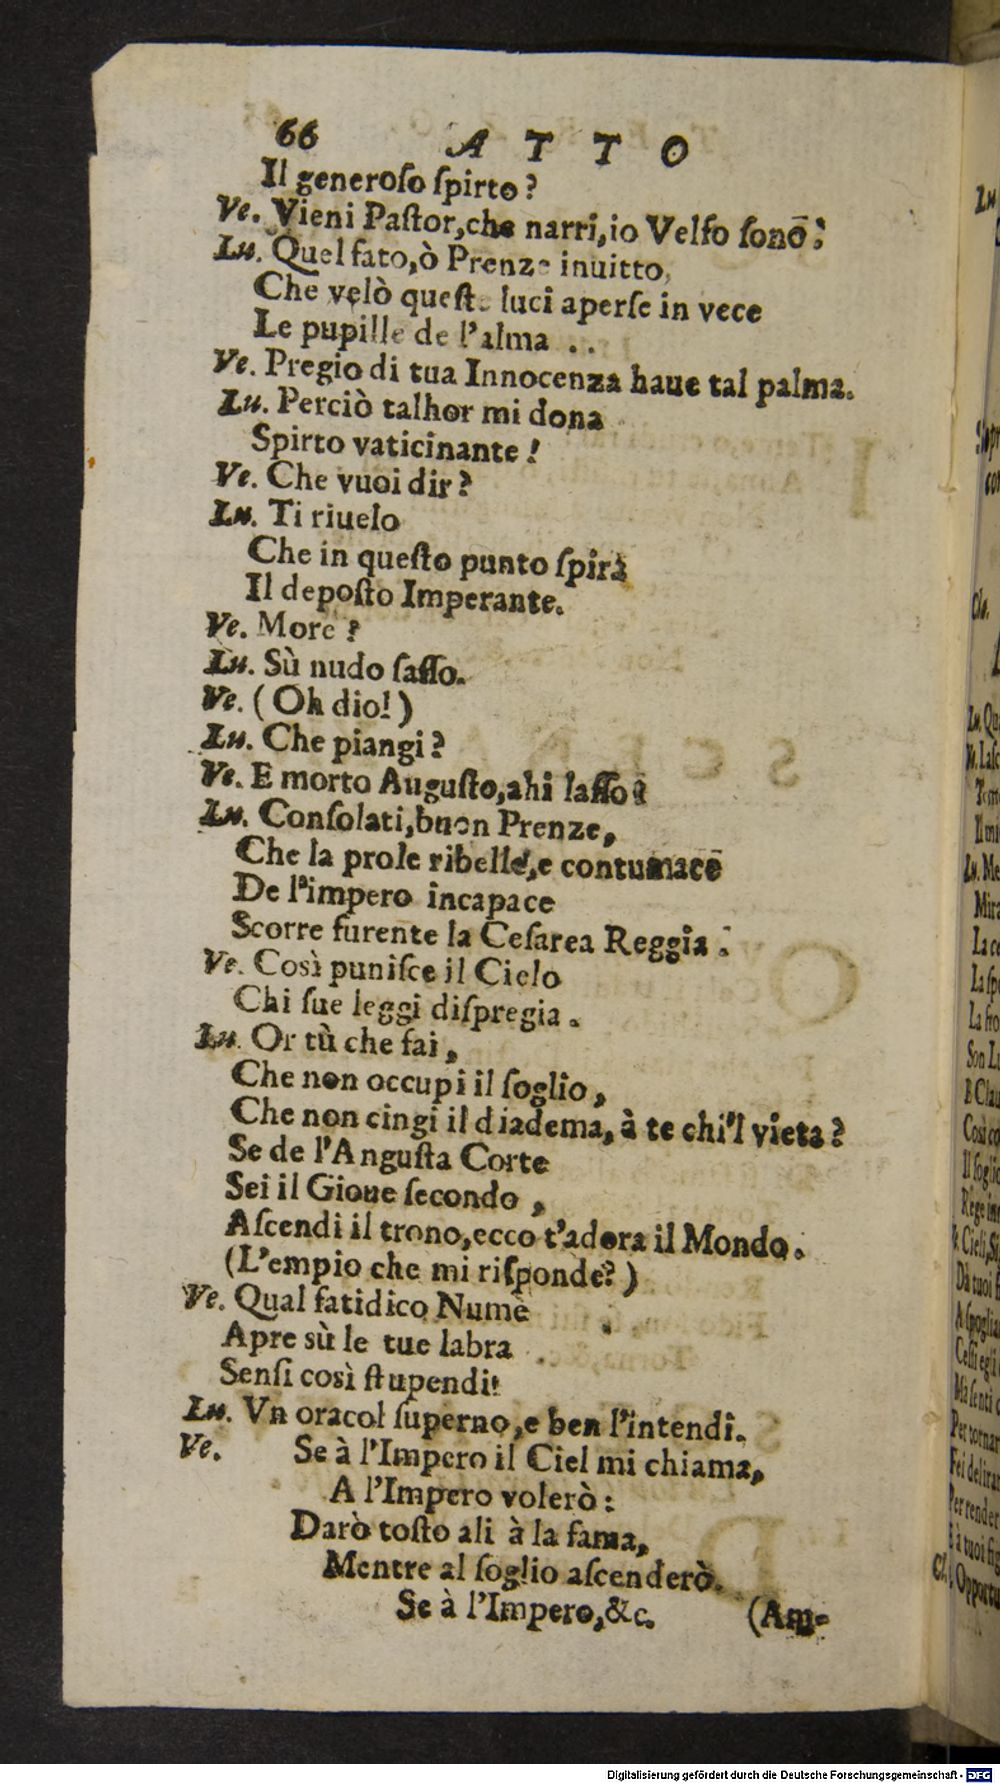 66 ATTO
Il generoſo ſpirto?
Ve. Vieni Paſtor, che narri, io Velfo ſono?
Lu. Quel fato, ò Prenze inuitto,
Che velò queſte luci aperſe in vece
Le pupille de l'alma . .
Ve. Pregio di tua Innocenza haue tal palma.
Lu. Perciò talhor mi dona
Spirto vaticinante!
Ve. Che vuoi dir?
Lu. Ti riuelo
Che in queſto punto ſpira
Il depoſto Imperante.
Ve. More?
Lu. Sù nudo ſaſſo.
Ve. (Oh dio!)
Lu. Che piangi?
Ve. E morto Auguſto, ahi laſſo?
Lu. Conſolati, buon Prenze,
Che la prole ribelle, e contumace
De l'impero incapace
Scorre furente la Ceſarea Reggia.
Ve. Così puniſce il Cielo
Chi ſue leggi diſpregia.
Lu. Or tù che fai,
Che non occupi il ſoglio,
Che non cingi il diadema, à te chi'l vieta?
Se de l'Anguſta Corte
Sei il Gioue ſecondo,
Aſcendi il trono, ecco t'adora il Mondo.
(L'empio che mi riſponde?)
Ve. Qual fatidico Nume
Apre sù le tue labra
Senſi così ſtupendi!
Lu. Vn oracol ſuperno, e ben l'intendi.
Ve. Se à l'Impero il Ciel mi chiama,
A l'Impero volerò:
Darò toſto ali à la fama,
Mentre al ſoglio aſcenderò.
Se à l'Impero, &c. (Am-
Digitalisierung gefördert durch die Deutsche Forschungsgemeinschaft - DFG